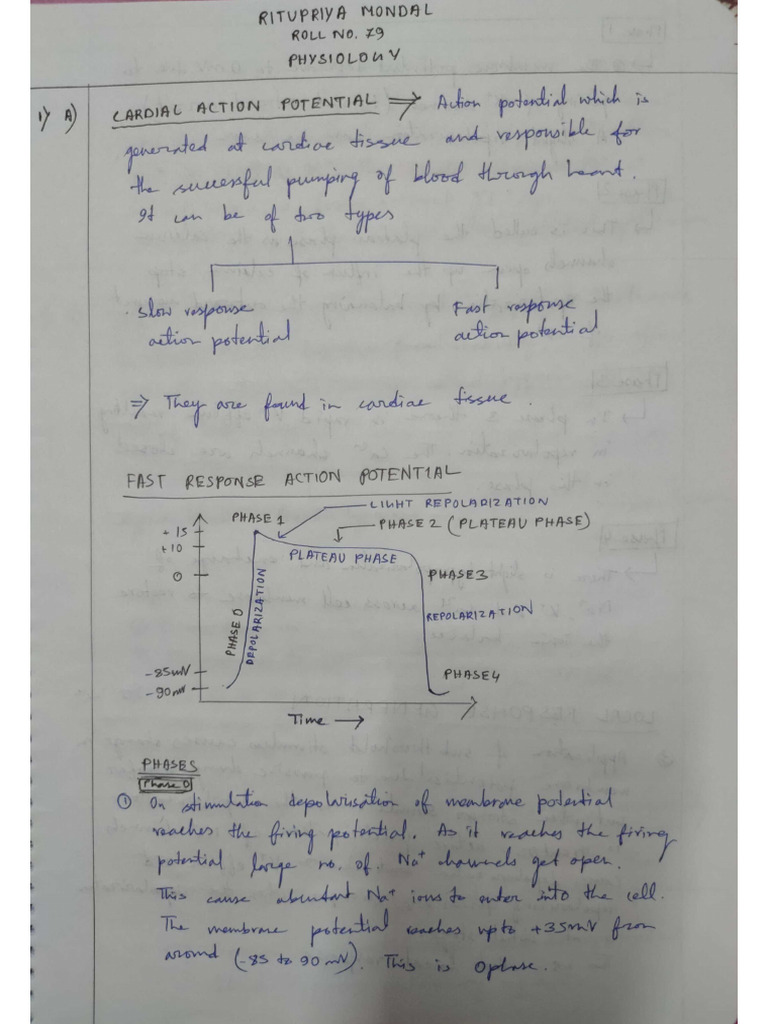 RITUPRIYA MONDAL
ROLL NO. 79
PHYSIOLOGY
1) A) CARDIAL ACTION POTENTIAL ⇒ Action potential which is
generated at cardiac tissue and responsible for
the successful pumping of blood through heart.
It can be of two types
Slow response
action potential
Fast response
action potential
⇒ They are found in cardiac tissue.
FAST RESPONSE ACTION POTENTIAL
LIGHT REPOLARIZATION
PHASE 1
PHASE 2 (PLATEAU PHASE)
+15
+10
PLATEAU PHASE
0
PHASE3
PHASE 0
DEPOLARIZATION
REPOLARIZATION
-85mV
PHASE4
-90mV
Time →
PHASES
Phase 0
① On stimulation depolarisation of membrane potential
reaches the firing potential. As it reaches the firing
potential large no. of Na+ channels get open.
This cause abundant Na+ ions to enter into the cell.
The membrane potential reaches upto +35mV from
around (-85 to 90mV). This is 0phase.